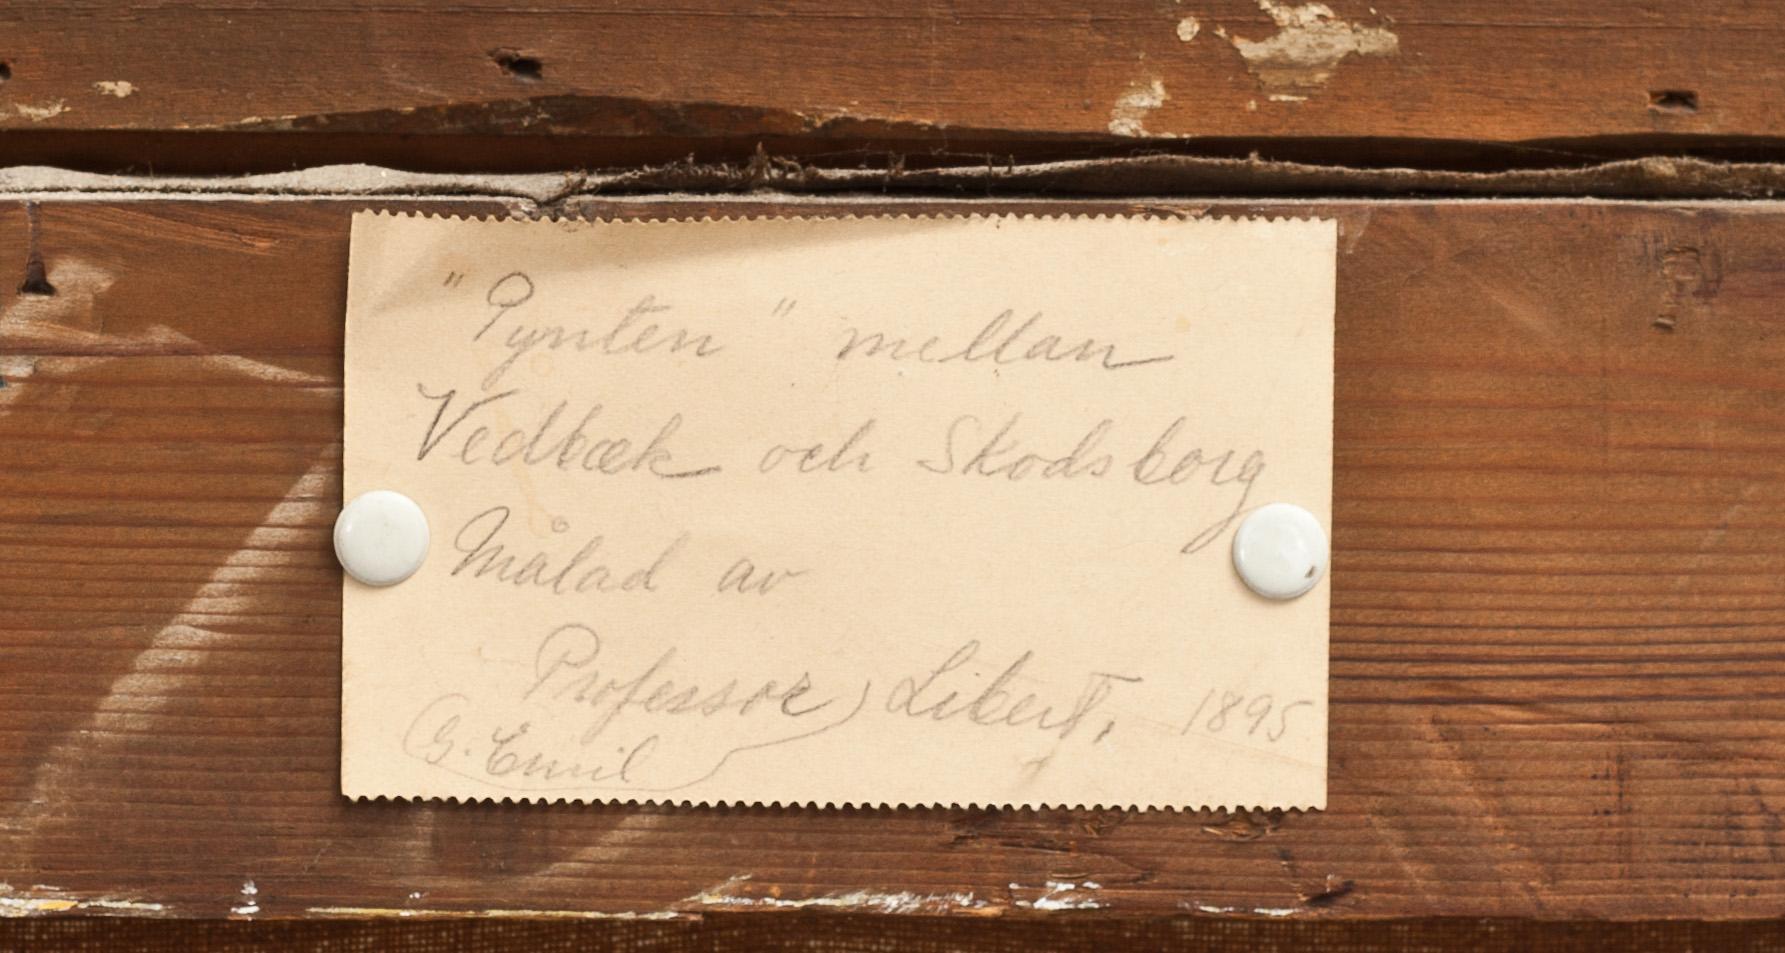 "Pynten" mellan
Vedbæk och Skodsborg
Målad av
Professor Libert, 1895
G. Emil